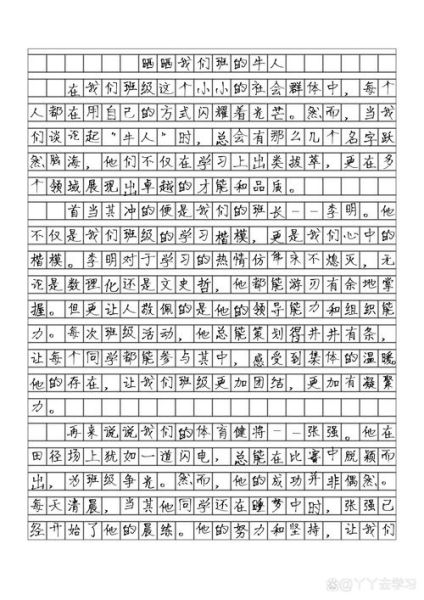 晒晒我们班的牛人
在我们班级这个小小的社会群体中，每个
人都在用自己的方式闪耀着光芒。然而，当我
们谈论起“牛人”时，总会有那么几个名字跃
然脑海，他们不仅在学习上出类拔萃，更在多
个领域展现出卓越的才能和品质。
首当其冲的便是我们的班长——李明。他
不仅是我们班级的学习楷模，更是我们心中的
楷模。李明对于学习的热情仿佛永不熄灭，无
论是数理化还是文史哲，他都能游刃有余地掌
握。但更让人敬佩的是他的领导能力和组织能
力。每次班级活动，他总能策划得井井有条，
让每个同学都能参与其中，感受到集体的温暖
他的存在，让我们班级更加团结，更加有凝聚
力。
再来说说我们的体育健将——张强。他在
田径场上犹如一道闪电，总能在比赛中脱颖而
出，为班级争光。然而，他的成功并非偶然。
每天清晨，当其他同学还在睡梦中时，张强已
经开始了他的晨练。他的努力和坚持，让我们
@丫丫去学习